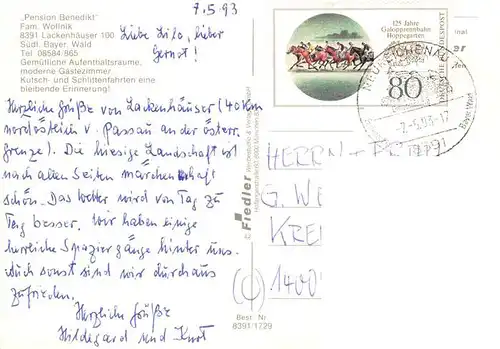 7.5.93
„Pension Benedikt"
Fam. Wollnik
8391 Lackenhäuser 100
Südl. Bayer. Wald
Tel 08584-865
Gemütliche Aufenthaltsräume,
moderne Gästezimmer
Kutsch- und Schlittenfahrten eine
bleibende Erinnerung!
Liebe Lilo, lieber
Gernot!
Herzliche Grüße von Lackenhäuser (40 km
nordöstlich v. Passau an der österr.
Grenze). Die hiesige Landschaft ist
nach allen Seiten märchenhaft
schön. Das Wetter wird von Tag zu
Tag besser. Wir haben einige
herrliche Spaziergänge hinter uns.
Auch sonst sind wir durchaus
zufrieden.
Herzliche Grüße
Hildegard und Kurt
© Fiedler
Best. Nr.
8391/1729
125 Jahre
Galopprennbahn
Hoppegarten
80
DEUTSCHE BUNDESPOST
NEUREICHENAU
-7.-5.93-17
Bayer Wald
Fiedler
HERRN + FR
G. WE
KRE
1400